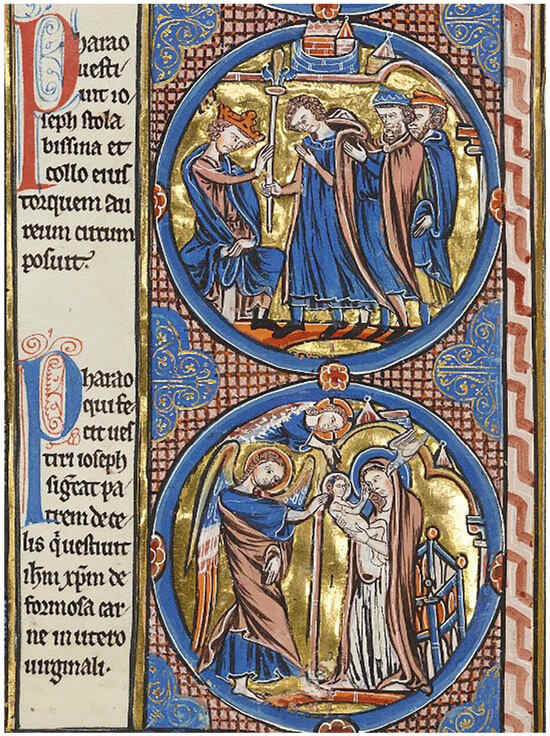 Pharao
uesti
uit io
seph stola
bissina et
collo eius
torquem au
reum circum
posuit.
Pharao
qui fe
cit ues
tiri ioseph
sig̅cat pa
trem de ce
lis q̇ uestiuit
ih̅m xp̅m de
formosa car
ne in utero
uirginali.